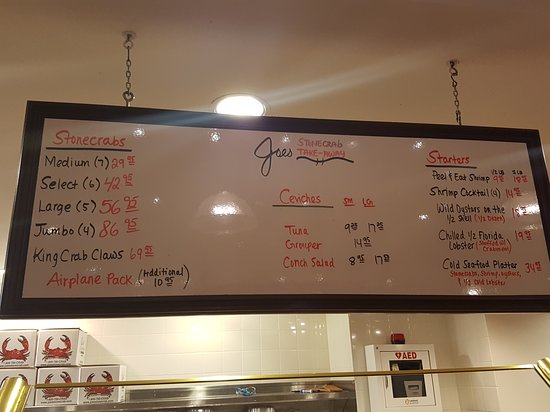 Stonecrabs
Medium (7) 29 95
Select (6) 42 95
Large (5) 56 95
Jumbo (4) 86 95
King Crab Claws 69 95
Airplane Pack (Additional) 10 95
Joes STONECRAB
TAKE-AWAY
Ceviches SM LG
Tuna 9 95 17 95
Grouper 14 95
Conch Salad 8 95 17 95
Starters
1/2 LB 1 LB
Peel & Eat Shrimp 9 95 18 95
Shrimp Cocktail (4) 14 95
Wild Oysters on the
1/2 Shell (1/2 Dozen) 19 95
Chilled 1/2 Florida
Lobster 19 95
Cold Seafood Platter 34 95
Stonecrabs, Shrimp, oysters,
& 1/2 chld lobster
AED